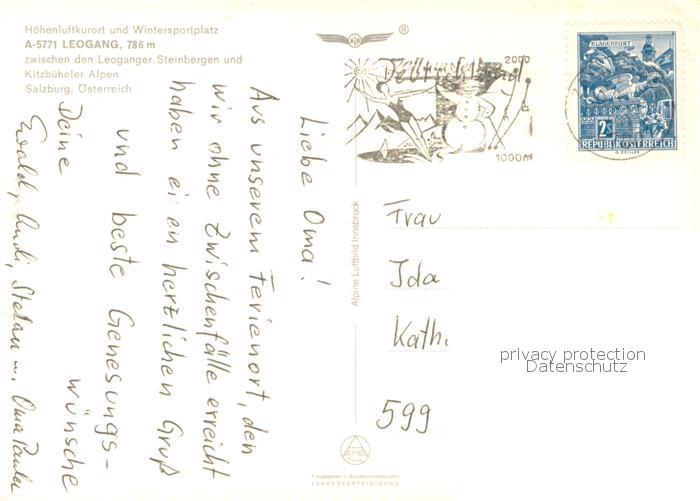 Höhenluftkurort und Wintersportplatz
A-5771 LEOGANG, 786 m
zwischen den Leoganger Steinbergen und
Kitzbüheler Alpen
Salzburg, Österreich
Liebe Oma!
Aus unserem Ferienort, den
wir ohne Zwischenfälle erreicht
haben einen herzlichen Gruß
und beste Genesungs-
wünsche
Deine
Ewald, Rudi, Stefan u. Oma Paula
Alpine Luftbild Innsbruck
ALPINE
Freigegeben v. Bundesministerium f.
LANDESVERTEIDIGUNG
®
2000
1000m
KLAGENFURT
2S
REPUBLIK ÖSTERREICH
Frau
Ida
Kath.
599
privacy protection
Datenschutz